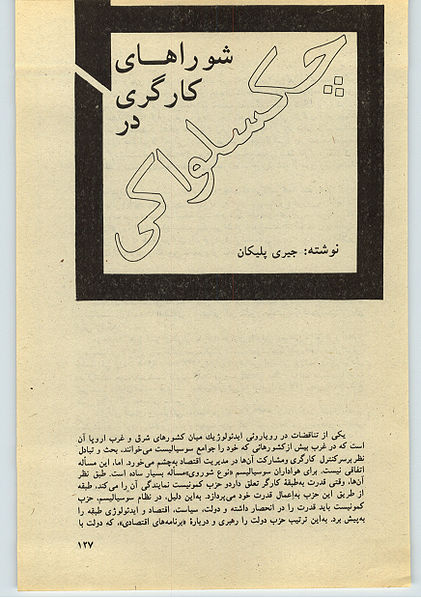 شوراهـای
کارگری
در
چکسلواکی
نوشته: جیری پلیکان
یکی از تناقضات در رویارویی ایدئولوژیك میان کشورهای شرق و غرب اروپا آن
است که در غرب بیش ازکشورهائی که خود را جوامع سوسیالیست می‌خوانند، بحث و تبادل
نظر برسرکنترل کارگری ومشارکت آن‌ها در مدیریت اقتصاد به‌چشم می‌خورد. اما، این مسأله
اتفاقی نیست. برای هواداران سوسیالیسم «نوع شوروی»مسأله بسیار ساده است. طبق نظر
آن‌ها، وقتی قدرت به‌طبقهٔ کارگر تعلق داردو حزب کمونیست نمایندگی آن را می‌کند، طبقه
از طریق این حزب به‌اِعمال قدرت خود می‌پردازد. به‌این دلیل، در نظام سوسیالیسم، حزب
کمونیست باید قدرت را در انحصار داشته و دولت، سیاست، اقتصاد و ایدئولوژی طبقه را
به‌پیش برد. به‌این ترتیب حزب دولت را رهبری و دربارهٔ «برنامه‌های اقتصادی»، که دولت با
۱۲۷